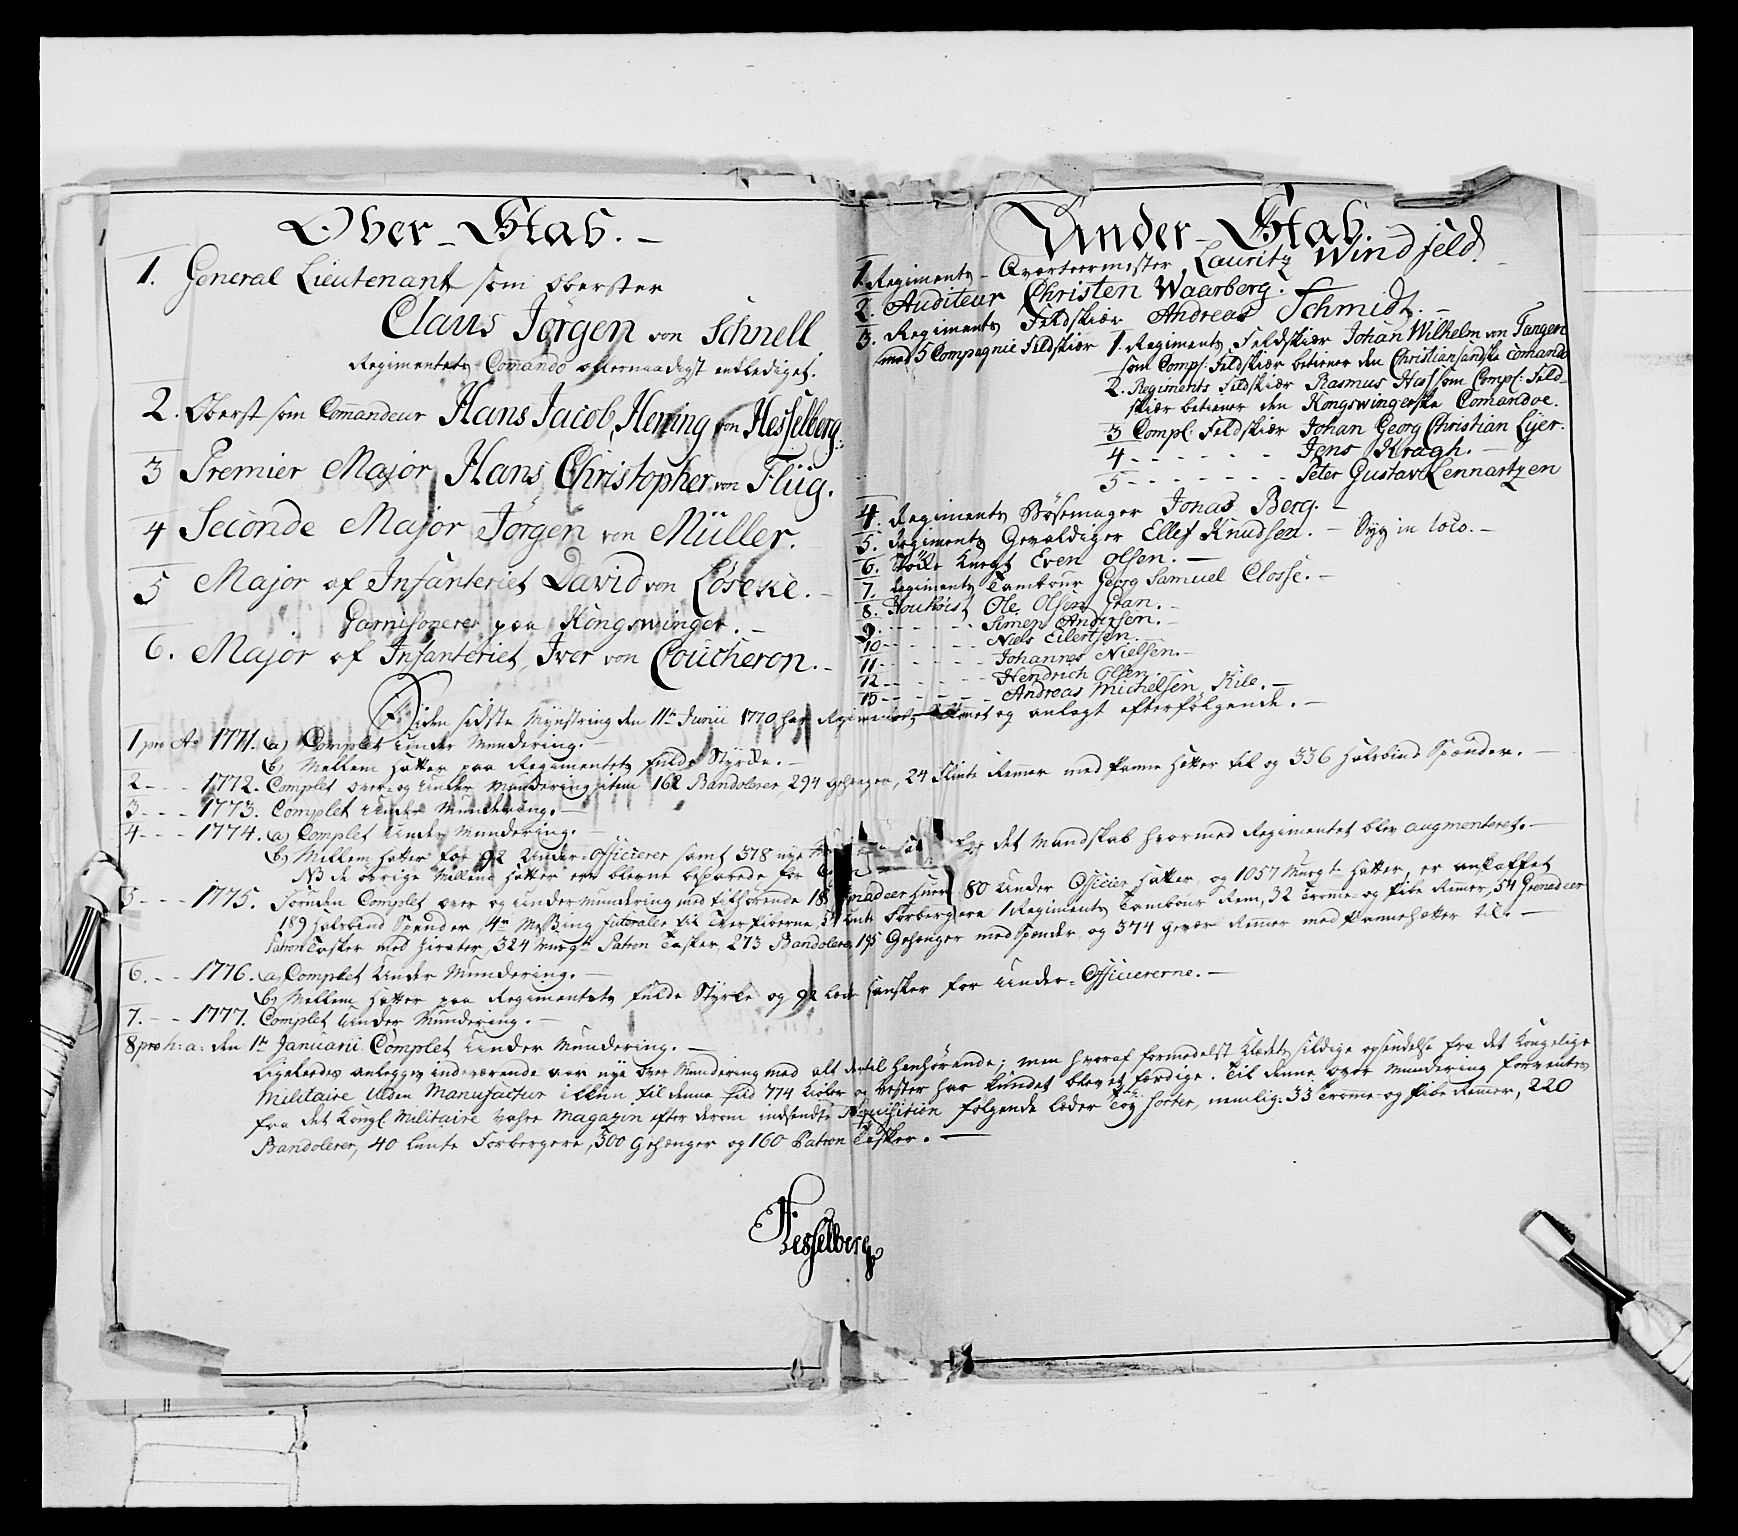 Over-Stab.
1. General Lieutenant som Oberster
Claus Jørgen von Schnell
Regimentets Comando allernaadigst entlediget.
2. Oberst som Comandeur Hans Jacob Hening von Hesselberg.
3 Premier Major Hans Christopher von Flüg.
4 Seconde Major Jørgen von Müller.
5 Major af Infanteriet David von Løseke.
Garnisonerer paa Kongswinger.
6. Major af Infanteriet, Iver von Coucheron.
Under-Stab.
1. Regiments-Qvarteermester, Lauritz Windfeld.
2. Auditeur Christen Waarberg.
3. Regiments Feldskiær Andreas Schmidt.
med 5 Compagnie Feldskiær 1. Regiments Feldskiær Johan Wilhelm von Tangen
som Comp: Feldskiær betiener den Christiansandske Comando
2. Regiments Feldskiær Rasmus Hass som Comp: Feld-
skiær betiener den Kongswingerske Comandoe.
3 Comp: Feldskiær Johan Georg Christian Eyer.
4 - - - - - - Jens Kragh.
5 - - - - - - Peter Gustav Lennartzen
4. Regiments Bøsemager Jonas Berg.
5. Regiments Gevaldiger Ellef Knudsen. - Syg in loco.
6. Knegt Even Olsen.
7. Regiments Tambour Georg Samuel Closse.
8. Houtboist Ole Olsen Gran.
9 - - - - - - Simen Andersen.
10 - - - - - - Niels Eilertsen.
11 - - - - - - Johannes Nielsen.
12 - - - - - - Hendrich Olsen.
13 - - - - - - Andreas Michelsen Kile.
Siden sidste Mynstring den 11te Junii 1770 har Regimentet og anlagt efterfølgende.
1 pro Ao 1771. a) Complet Under Mundering.
b) Mellem Hatter paa Regimentets fulde Styrke.
2 - - - 1772. Complet Over- og Under Mundering item 162 Bandolerer 294 Gehenger, 24 Flinte Remmer med Pannehatter til og 336 Halsbind Spænder.
3 - - - 1773. Complet Under Mundering.
4 - - - 1774. a) Complet Under Mundering.
b) Mellem Hatter for 92 Under-Officierer samt 378 nye det Mandskab hvormed Regimentet blev augmenteret.
NB de øvrige Mellem Hatter ere blevne besparede for
5 - - - 1775. Foruden Complet over og Undermundering med tilhørende 80 Under Officier Hatter, og 1057 Mursqtr Hatter, er anskaffet
189 Halsbind Spender, 4re Messing Futoraler til Tverfiberne, Lunte Forbergere 1 Regiments Tambour Rem, 32 Trome- og Pibe Remer, 54 Grenadeer
Patron Tasker med Zirater, 324 Musqtr Patron Tasker, 273 Bandolerer, 195 Gehenger med Spender, og 374 Gevær Remmer med Pannehatter til.
6. - - 1776. a, Complet Under Mundering.
b, Mellem Hatter paa Regimentets fulde Styrke og 92 Læder Hansker for Under-Officiererne.
7. - - 1777. Complet Under Mundering.
8 pro h: a: den 1te Januarii Complet Under Mundering.
Ligeledes anlegges indeværende aar nye Over Mundering med alt dertil henhørende; men hvoraf formedelst Klædets sildige opsendelse fra det Kongelige
Militaire Ulden Manufactur illun til denne tiid 774 Kioler og Vester har kundet blevet færdige. Til denne over Mundering forventes
fra det Kongl: Militaire Vahre Magazin efter derom indsendte Requisition følgende Læder Tøy Sorter, nemlig: 33 Trome- og Pibe Remer, 220
Bandolerer, 40 Lunte Forbergere, 300 Gehænger og 160 Patron Tasker.
Hesselberg